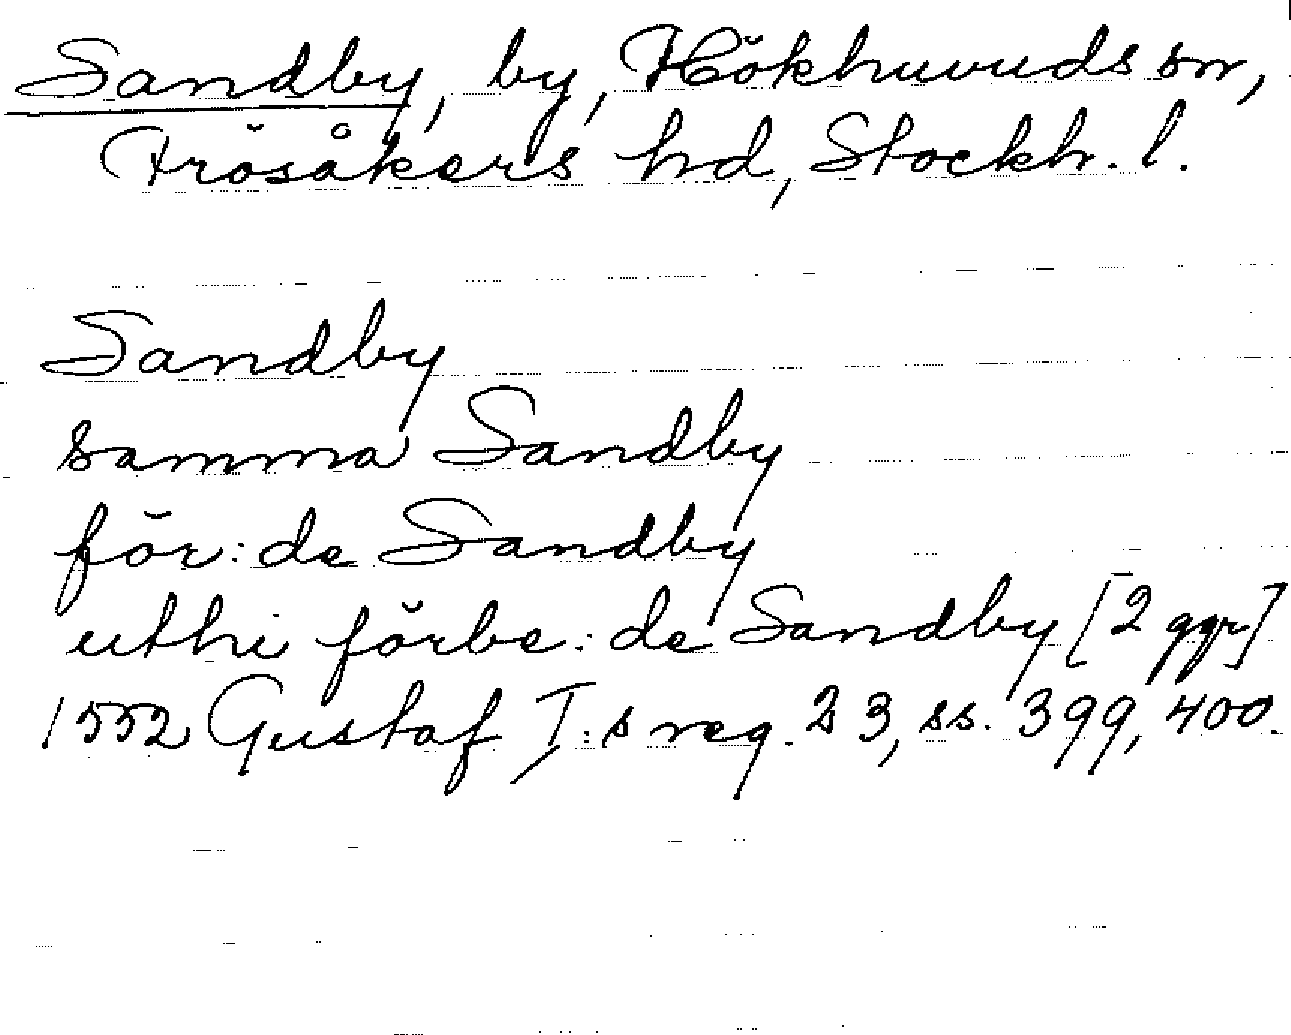 Sandby, by, Hökhuvuds sn,
Frösåkers hd, Stockh. l.
Sandby
samma Sandby
för: de Sandby
uthi förbe: de Sandby [2 ggr]
1552 Gustaf I:s reg. 23, ss. 399, 400.